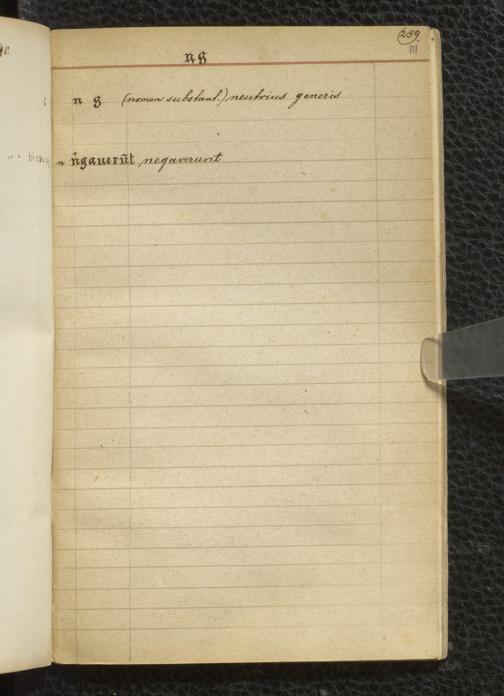 289
III
n g
n g (nomen substant.) neutrius generis
n n̄gauerūt negaverunt